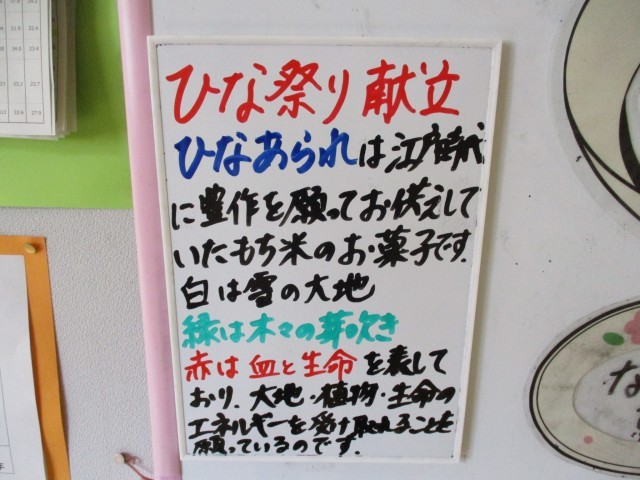 ひな祭り献立
ひなあられは江戸時代
に豊作を願ってお供えして
いたもち米のお菓子です.
白は雪の大地
緑は木々の芽吹き
赤は血と生命を表して
おり.大地・植物・生命の
エネルギーを受け取れることを
願っているのです.
な